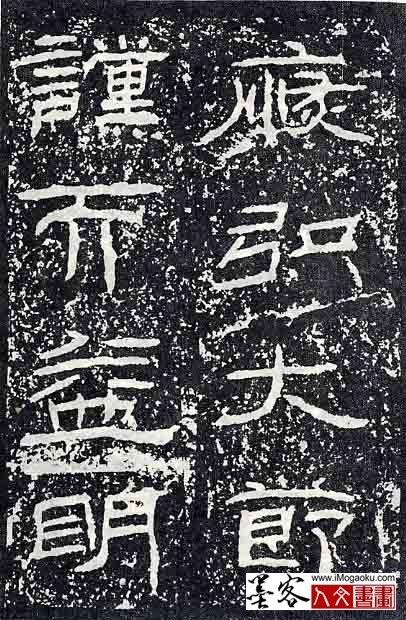 弘大節
謹而益明
墨客
www.iMogaoku.com
人文書畫